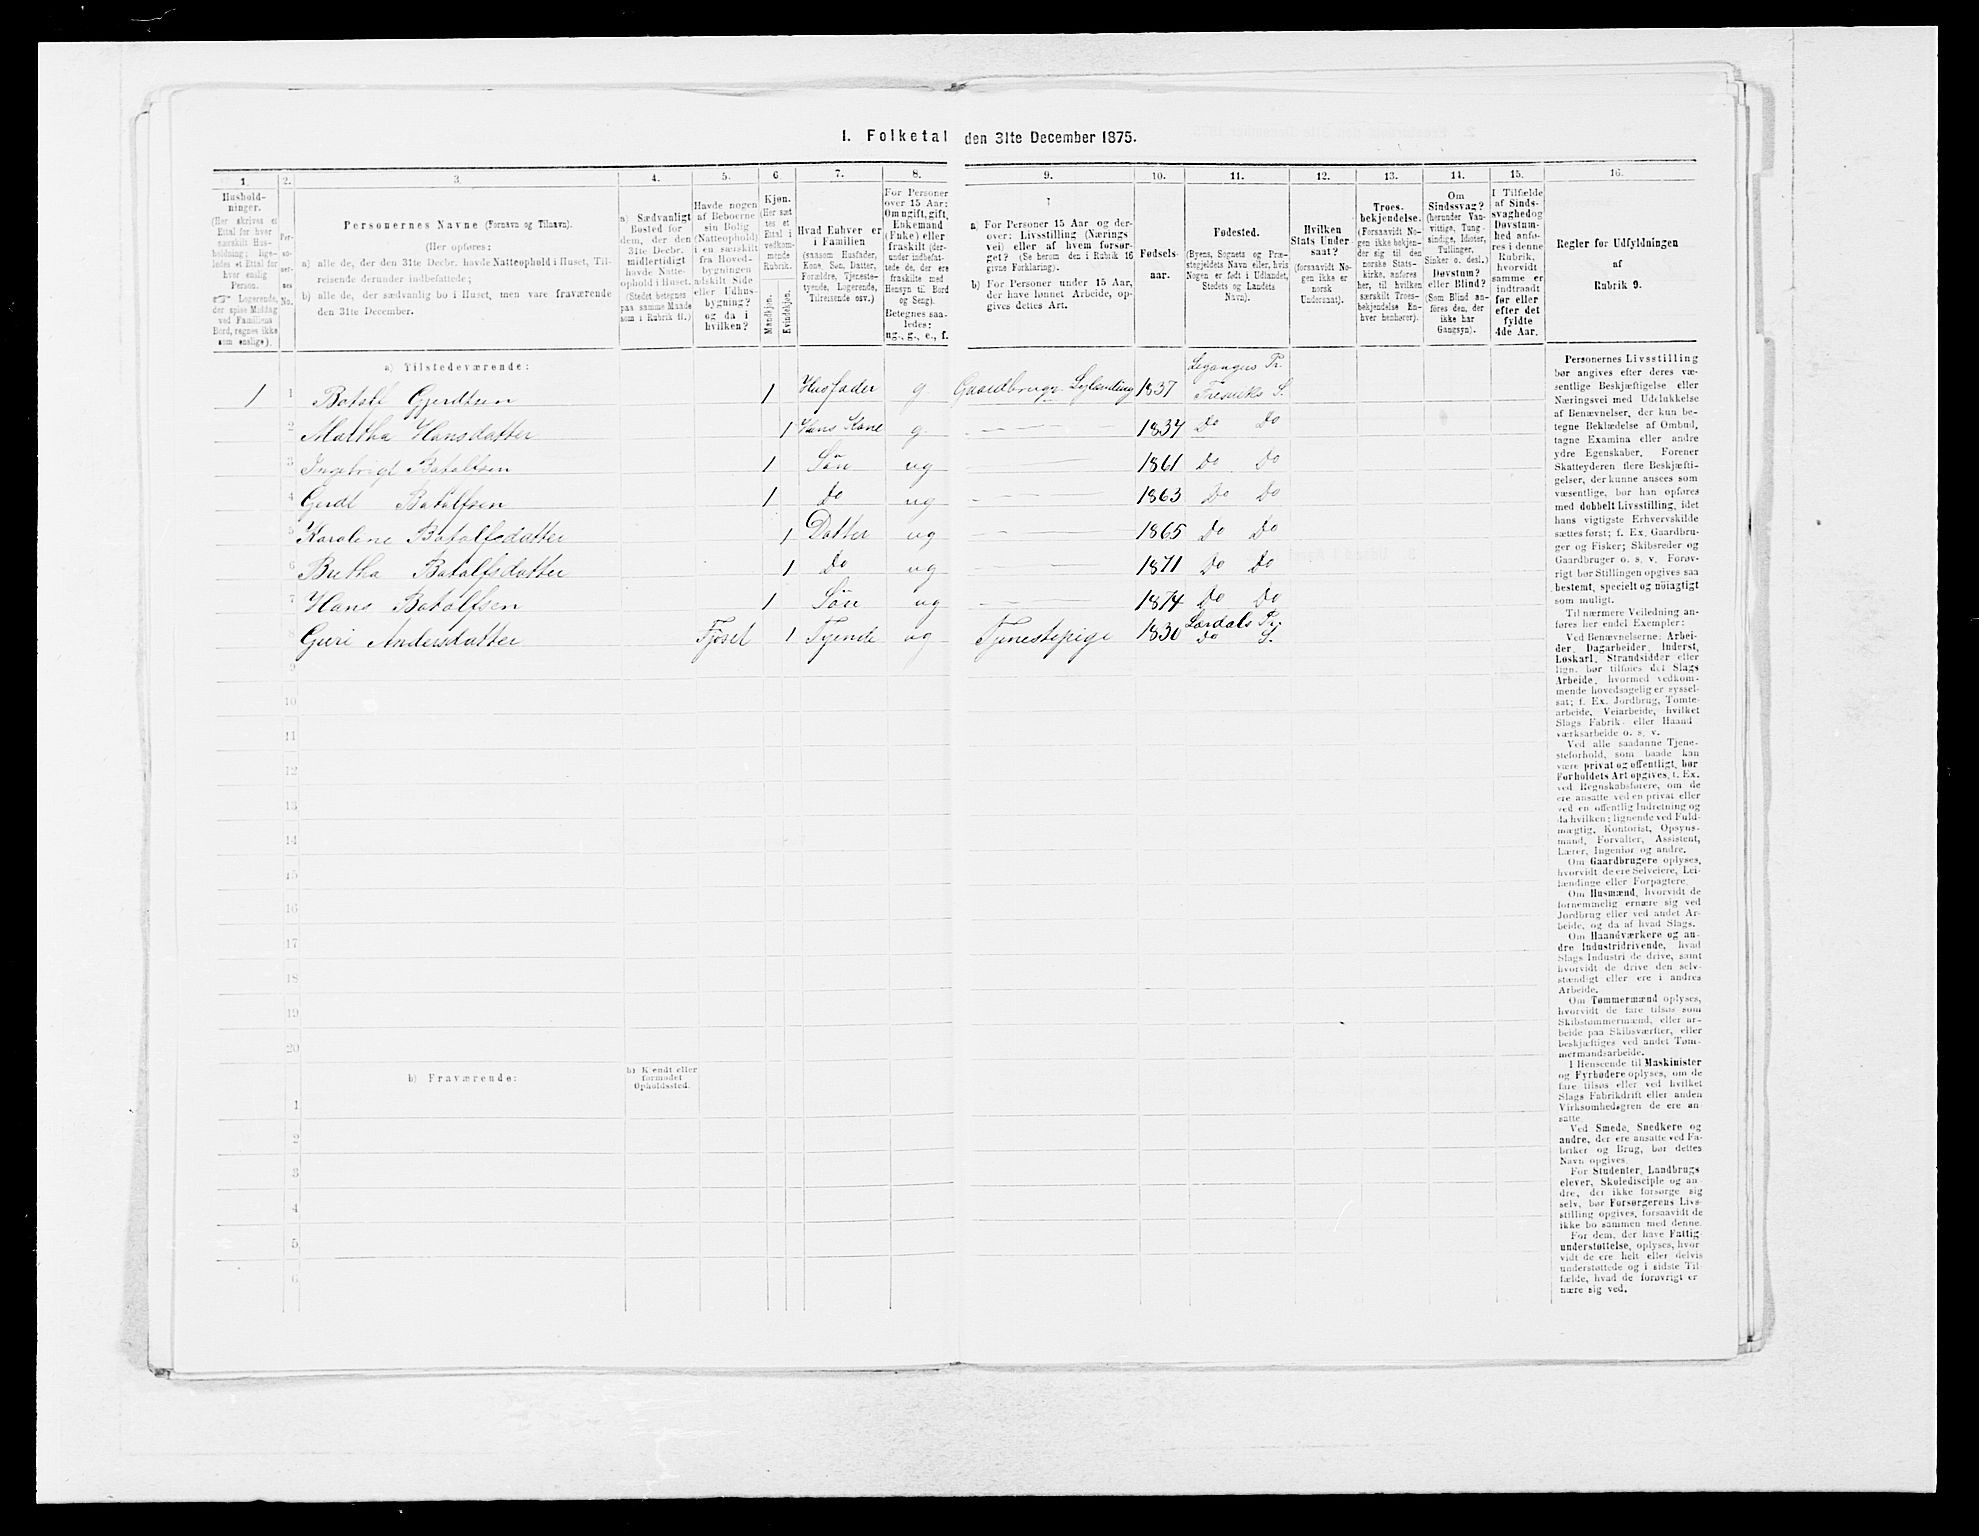 1. Folketal den 31te December 1875.
1. 2. 3. 4. 5. 6. 7. 8. 9. 10. 11. 12. 13. 14. 15. 16.
Hushold-
ninger.
(Her skrives et
Ettal for hver
særskilt Hus-
holdning; lige-
ledes et Ettal for
hver enslig
Person.
☞ Logerende,
der spise Middag
ved Familiens
Bord, regnes ikke
som enslige).
Per-
so-
ner-
nes
No.
Personernes Navne (Fornavn og Tilnavn).
(Her opføres:
a) alle de, der den 31te Decbr. havde Natteophold i Huset, Til-
reisende derunder indbefattede;
b) alle de, der sædvanlig bo i Huset, men vare fraværende
den 31te December.
a) Sædvanligt
Bosted for
dem, der den
31te Decbr.
midlertidigt
havde Natte-
ophold i Huset.
(Stedet betegnes
paa samme Maade
som i Rubrik 11.)
Havde nogen
af Beboerne
sin Bolig
(Natteophold)
i en særskilt
fra Hoved-
bygningen
adskilt Side-
eller Udhus-
bygning?
og da i
hvilken?
Kjøn.
(Her sæt-
tes et
Ettal i
vedkom-
mende
Rubrik.
Mandkjøn.
Kvindekjøn.
Hvad Enhver er
i Familien
(saasom Husfader,
Kone, Søn, Datter,
Forældre, Tjeneste-
tyende, Logerende,
Tilreisende osv.)
For Personer
over 15 Aar:
Om ugift, gift,
Enkemand
(Enke) eller
fraskilt (der-
under indbefat-
tede de, der ere
fraskilte med
Hensyn til Bord
og Seng).
Betegnes saa-
ledes:
ug., g., e., f.
a) For Personer 15 Aar og der-
over: Livsstilling (Nærings-
vei) eller af hvem forsør-
get? (Se herom den i Rubrik 16
givne Forklaring).
b) For Personer under 15 Aar,
der have lønnet Arbeide, op-
gives dettes Art.
Fødsels-
aar.
Fødested.
(Byens, Sognets og Præ-
stegjeldets Navn eller, hvis
Nogen er født i Udlandet,
Stedets og Landets
Navn).
Hvilken
Stats Under-
saat?
(forsaavidt No-
gen ikke er
norsk
Undersaat).
Troes-
bekjendelse.
(Forsaavidt No-
gen ikke bekjen-
der sig til den
norske Stats-
kirke, anføres
her, til hvilken
særskilt Troes-
bekjendelse En-
hver henhører).
Om
Sindssvag?
(herunder Van-
vittige, Tung-
sindige, Idioter,
Tullinger,
Sinker o. desl.)
Døvstum?
eller Blind?
(Som Blind an-
føres den, der
ikke har
Gangsyn).
I Tilfælde
af Sinds-
svaghed og
Døvstum-
hed anfø-
res i denne
Rubrik,
hvorvidt
samme er
indtraadt
før eller
efter det
fyldte
4de Aar.
Regler for Udfyldningen
af
Rubrik 9.
a) Tilstedeværende:
Leganger Pr.
1 1 Botolf Gjerdtsen 1 Husfader g. Gaardbruger 1837 S.
2 Martha Hansdatter 1 Hans Kone g. 1837 Do Do
3 Ingebrigt Botolfsen 1 Søn ug 1861 Do Do
4 Gerdt Botolfsen 1 Do ug 1863 Do Do
5 Karolene Botolfsdatter 1 Datter ug 1865 Do Do
6 Bretha Botolfsdatter 1 Do ug 1871 Do Do
7 Hans Botolfsen 1 Søn ug 1874 Do Do
8 Guri Andersdatter Fjøset 1 Tyende ug Tjenestepige 1830 Lærdals Pr.
Do S.
9
10
11
12
13
14
15
16
17
18
19
20
b) Fraværende:
b) Kjendt eller
formodet
Opholdssted.
1
2
3
4
5
6
Personernes Livsstilling
bør angives efter deres væ-
sentlige Beskjæftigelse eller
Næringsvei med Udelukkelse
af Benævnelser, der kun be-
tegne Beklædelse af Ombud,
tagne Examina eller andre
ydre Egenskaber. Forener
Skatteyderen flere Beskjæfti-
gelser, der kunne ansees som
væsentlige, bør han opføres
med dobbelt Livsstilling, idet
hans vigtigste Erhvervskilde
sættes først; f. Ex. Gaardbru-
ger og Fisker; Skibsreder og
Gaardbruger o. s. v. Forøv-
rigt bør Stillingen opgives saa
bestemt, specielt og nøiagtigt
som muligt.
Til nærmere Veiledning an-
føres her endel Exempler:
Ved Benævnelserne: Arbei-
der, Dagarbeider, Inderst,
Løskarl, Strandsidder eller
lign. bør tilføies det Slags
Arbeide, hvormed vedkom-
mende hovedsagelig er syssel-
sat; f. Ex. Jordbrug, Tomte-
arbeide, Veiarbeide, hvilket
Slags Fabrik- eller Haand-
værksarbeide o. s. v.
Ved alle saadanne Tjene-
steforhold, som baade kan
være privat og offentligt, bør
Forholdets Art opgives, f. Ex.
ved Regnskabsførere, om de
ere ansatte ved en privat eller
ved en offentlig Indretning og
da hvilken; lignende ved Fuld-
mægtig, Kontorist, Opsyns-
mand, Forvalter, Assistent,
Lærer, Ingeniør og andre.
Om Gaardbrugere oplyses,
hvorvidt de ere Selveiere, Lei-
lændinge eller Forpagtere.
Om Husmænd, hvorvidt de
fornemmelig ernære sig ved
Jordbrug eller ved andet Ar-
beide, og da af hvad Slags.
Om Haandværkere og an-
dre Industridrivende, hvad
Slags Industri de drive, samt
hvorvidt de drive den selv-
stændigt eller ere i andres
Arbeide.
Om Tømmermænd oplyses,
hvorvidt de fare tilsøs som
Skibstømmermænd, eller ar-
beide paa Skibsværfter, eller
beskjæftiges ved andet Tøm-
mermandsarbeide.
I Henseende til Maskinister
og Fyrbødere oplyses, om de
fare tilsøs eller ved hvilket
Slags Fabrikdrift eller anden
Virksomhedsgren de ere an-
satte.
Ved Smede, Snedkere og
andre, der ere ansatte ved Fa-
briker og Brug, bør dettes
Navn opgives.
For Studenter, Landbrugs-
elever, Skoledisciple og an-
dre, der ikke forsørge sig
selv, bør Forsørgerens Livs-
stilling opgives, forsaavidt de
ikke bo sammen med denne.
For dem, der have Fattig-
understøttelse, oplyses, hvor-
vidt de ere helt eller delvis
understøttede og i sidste Til-
fælde, hvad de forøvrigt er-
nære sig ved.